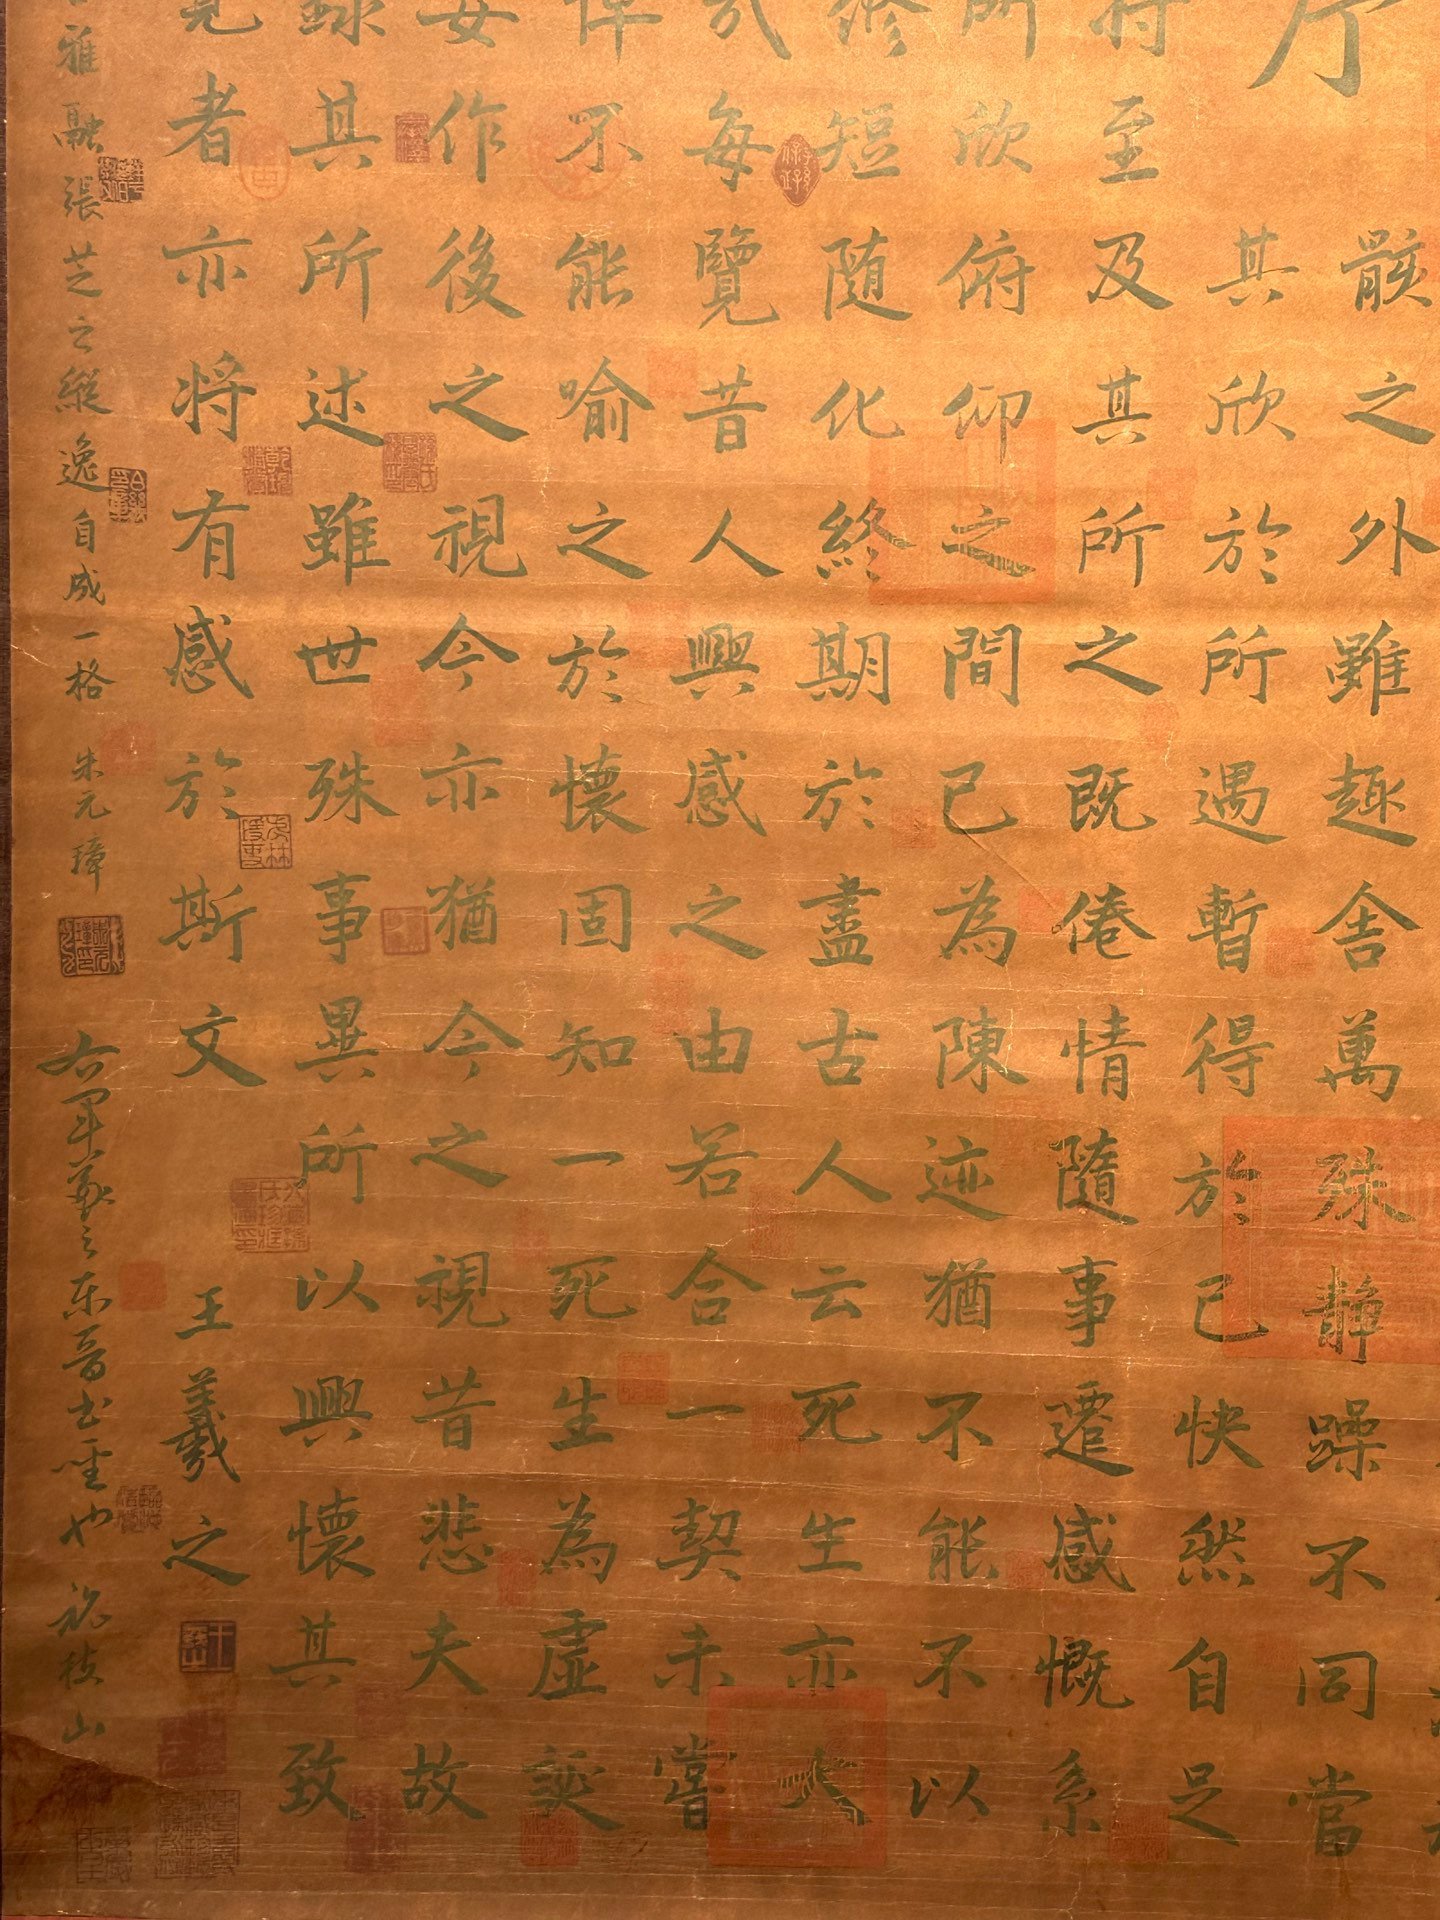 骸之外雖趣舍萬殊靜躁不同當
其欣於所遇暫得於己快然自足
將至及其所之既倦情隨事遷感慨系
所欣俯仰之間已為陳迹猶不能不以
修短随化終期於盡古人云死生亦大
哉每覽昔人興感之由若合一契未嘗
悼不能喻之於懷固知一死生為虛誕
妄作後之視今亦猶今之視昔悲夫故
錄其所述雖世殊事異所以興懷其致
覽者亦将有感於斯文
王羲之
雅融張芝之縱逸自成一格 朱元璋
右军羲之东晋书聖也 祝枝山